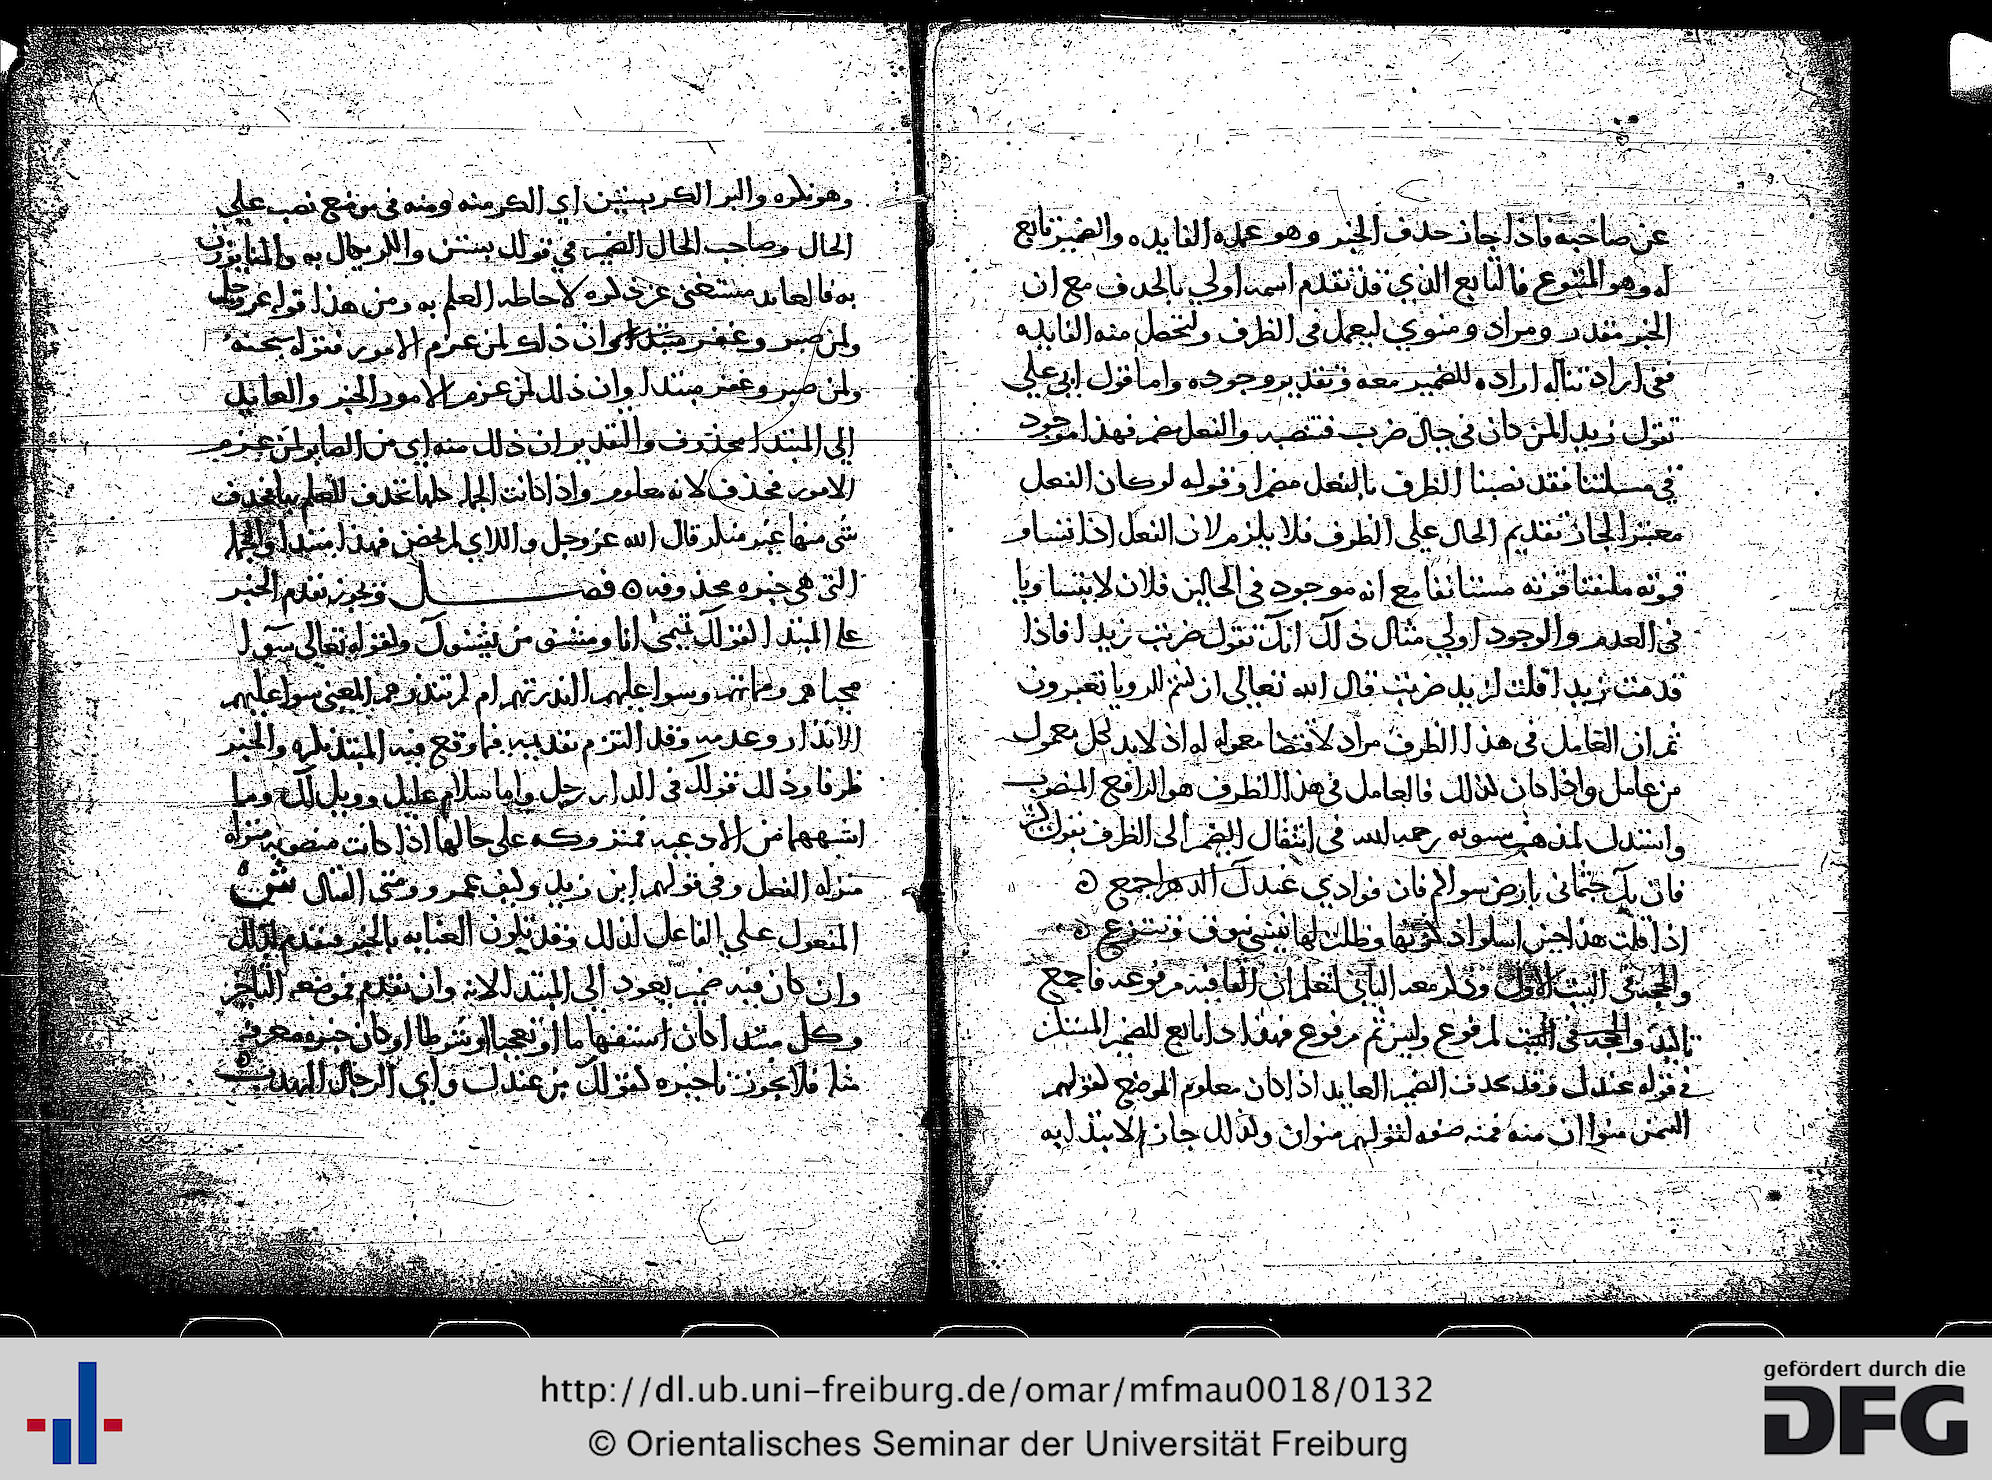 عن صاحبه فاذا جاز حذف الخبر وهو عمده الفايده والضمير تابع
له وهو المتبوع فالتابع الذي قد تقدم اسمه اولي بالحذف مع ان
الخبر مقدر ومراد ومنوي ليعمل في الظرف ولتحصل منه الفايده
ففي اراد تناله اراده للضمير معه وتقدير وجوده واما قول ابي علي
تقول زيدا لمن كان في حال ضرب فتنصبه والفعل مضمر فهذا موجود
في مسلتنا فقد نصبنا الظرف بالفعل مضمرا وقوله لو كان الفعل
معتبرا لجاز تقديم الحال علي الظرف فلا يلزم لان الفعل اذا تنسا و
قوته ملتفتا قوته مستانفا مع انه موجود في الحالين فلان لا يتساويا
في العدم والوجود اولي مثال ذلك انك تقول ضربت زيدا فاذا
قدمت زيدا قلت لزيد ضربت قال الله تعالي ان كنتم للرويا تعبرون
ثم ان العامل في هذا الظرف مراد لاقتضا معموله له اذ لا بد لكل معمول
من عامل واذا كان كذلك فالعامل في هذا الظرف هو الرافع المضمر
واستدل لمذهب سيبويه رحمه الله في انتقال الضمير الي الظرف بقول كثير
فان يك جثماني بارض سواكم فان فوادي عندك الدهر اجمع
اذا قلت هذا حين اسلو ذكرتها وظلت لها نفسي تتوق وتنزع
والحجه في البيت الاول وذكر معه الثاني لتعلم ان القافيه مرفوعه فاجمع
تاكيد والحجه في البيت لمرفوع وليس ثم مرفوع فهو اذا تابع للضمير المستتر
في قوله عندك وقد يحذف الضمير العايد اذا كان معلوم الموضع كقولهم
السمن منوان منه فمنه صفه لقولهم منوان ولذلك جاز الابتدا به
وهو نكره والبر الكر بستين اي الكر منه ومنه في موضع نصب علي
الحال وصاحب الحال الضمير في قولك بستين والكر يكال به والمنا يوزن
به فالعايد مستغني عن ذكره لاحاطه العلم به ومن هذا قوله عز وجل
ولمن صبر وغفر ان ذلك لمن عزم الامور فقوله سبحنه
ولمن صبر وغفر مبتدا وان ذلك لمن عزم الامور الخبر والعايد
الي المبتدا محذوف والتقدير ان ذلك منه اي من الصابر لمن عزم
الامور فحذف لانه معلوم واذا كانت الجمله كلها تحذف للعلم بها فحذف
شي منها غير منكر قال الله عز وجل واللاي لم يحضن فهذا مبتدا والجمله
التي هي خبره محذوفه ه فصل ويجوز تقدم الخبر
علي المبتدا كقولك تميمي انا ومشنو من يشنوك وكقوله تعالي سوا
محياهم ومماتهم وسوا عليهم اانذرتهم ام لم تنذرهم المعني سوا عليهم
الانذار وعدمه وقد التزم تقديمه فيما وقع فيه المبتدا نكره والخبر
ظرفا وذلك قولك في الدار رجل واما سلام عليك وويل لك وما
اشبههما من الادعيه فمتروكه علي حالها اذا كانت منصوبه منزله
منزله الفعل وفي قولهم اين زيد وكيف عمرو ومتي القتال
المفعول علي الفاعل كذلك وقد تكون العنايه بالخبر فيقدم لذلك
وان كان فيه ضمير يعود الي المبتدا لانه وان تقدم فموضعه التاخير
وكل مبتدا كان استفهاما او تعجبا او شرطا او كان خبره معرفه
مثله فلا يجوز تاخيره كقولك من عندك واي الرجال المهذب
http://dl.ub.uni-freiburg.de/omar/mfmau0018/0132
© Orientalisches Seminar der Universität Freiburg
gefördert durch die
DFG